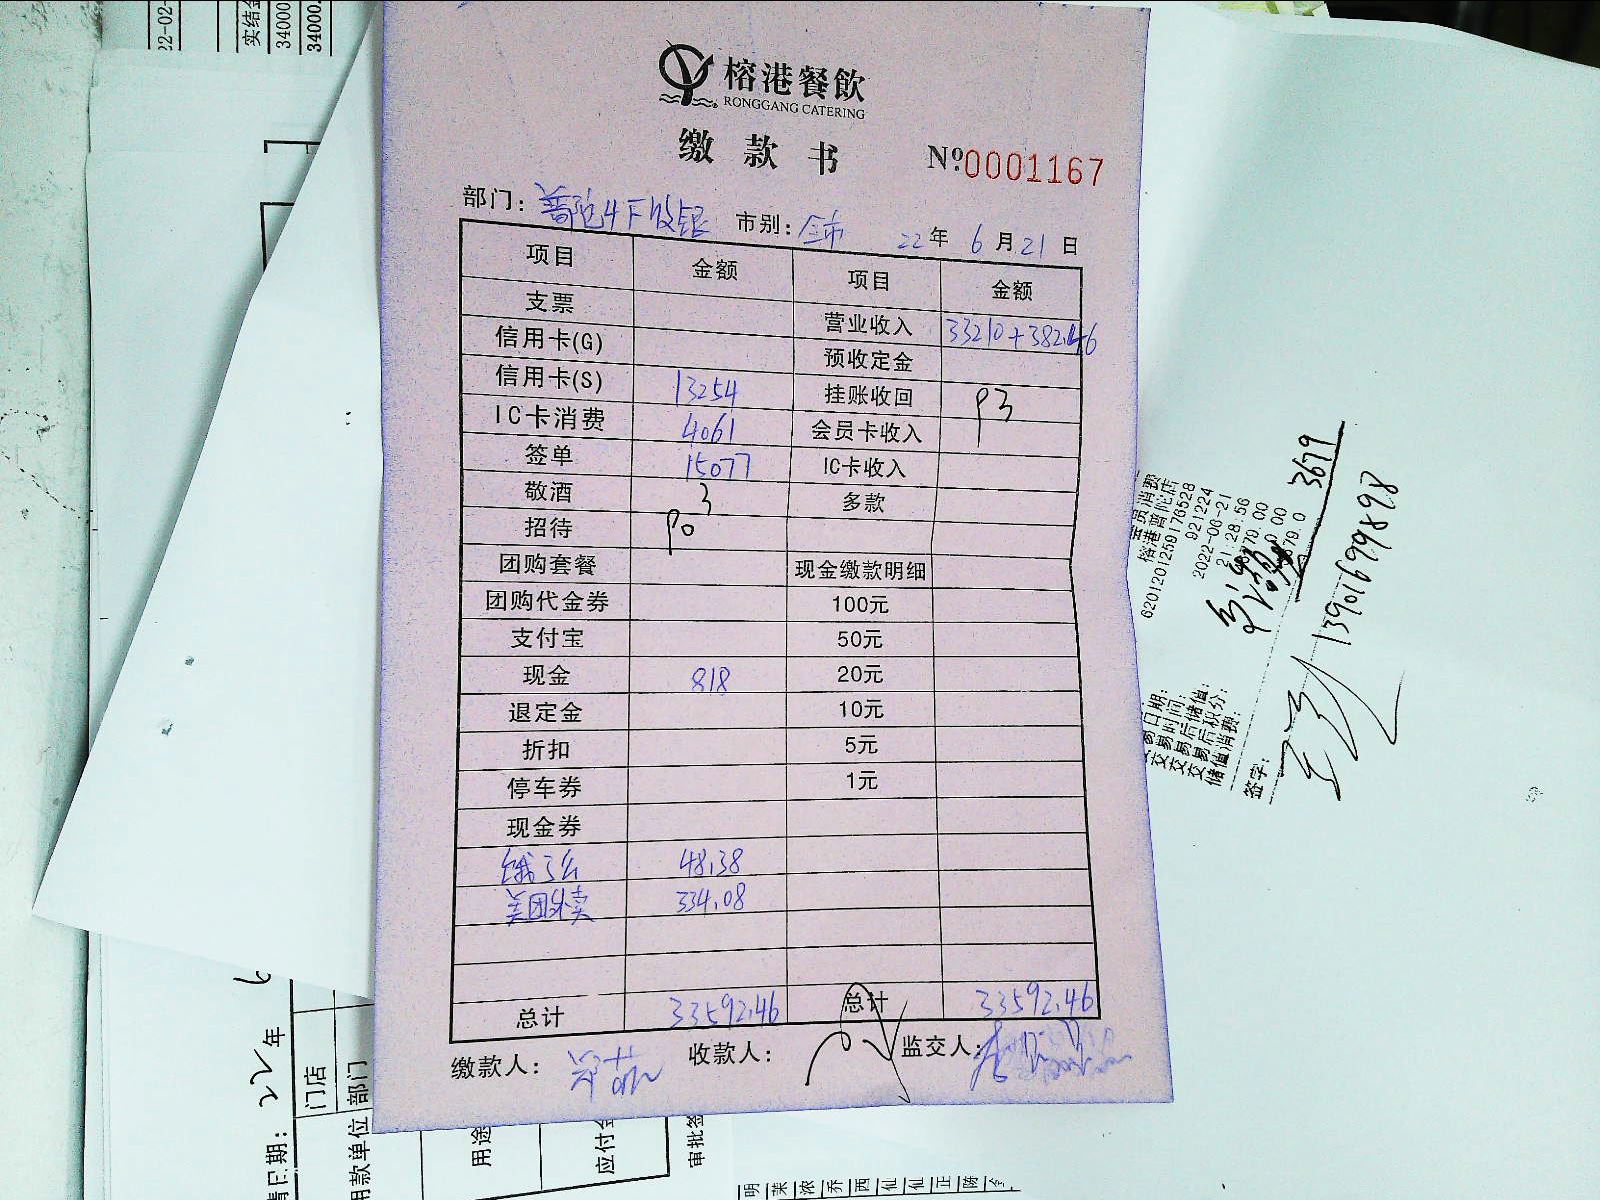 榕港餐飲
RONGGANG CATERING
缴款书 №0001167
部门：普陀4F收银 市别：全市 22年6月21日
项目 金额 项目 金额
支票 营业收入 33210+382.46
信用卡(G) 预收定金
信用卡(S) 13254 挂账收回
IC卡消费 4061 会员卡收入
签单 15077 IC卡收入
敬酒 多款
招待
团购套餐 现金缴款明细
团购代金券 100元
支付宝 50元
现金 818 20元
退定金 10元
折扣 5元
停车券 1元
现金券
饿了么 48.38
美团外卖 334.08
总计 33592.46 总计 33592.46
缴款人： 收款人： 监交人：
22-02-
实结金
34000
34000.
会员消费
榕港普陀店
6201201259176528
921224
2022-06-21
21:28:56
3679
13901699898
交易日期：
交易时间：
交易后储值：
交易后积分：
储值消费：
签字：
请日期： 22年
门店
用款单位 部门
用途
应付金
审批签
明
茉
浓
乔
西
仙
仙
正
陈